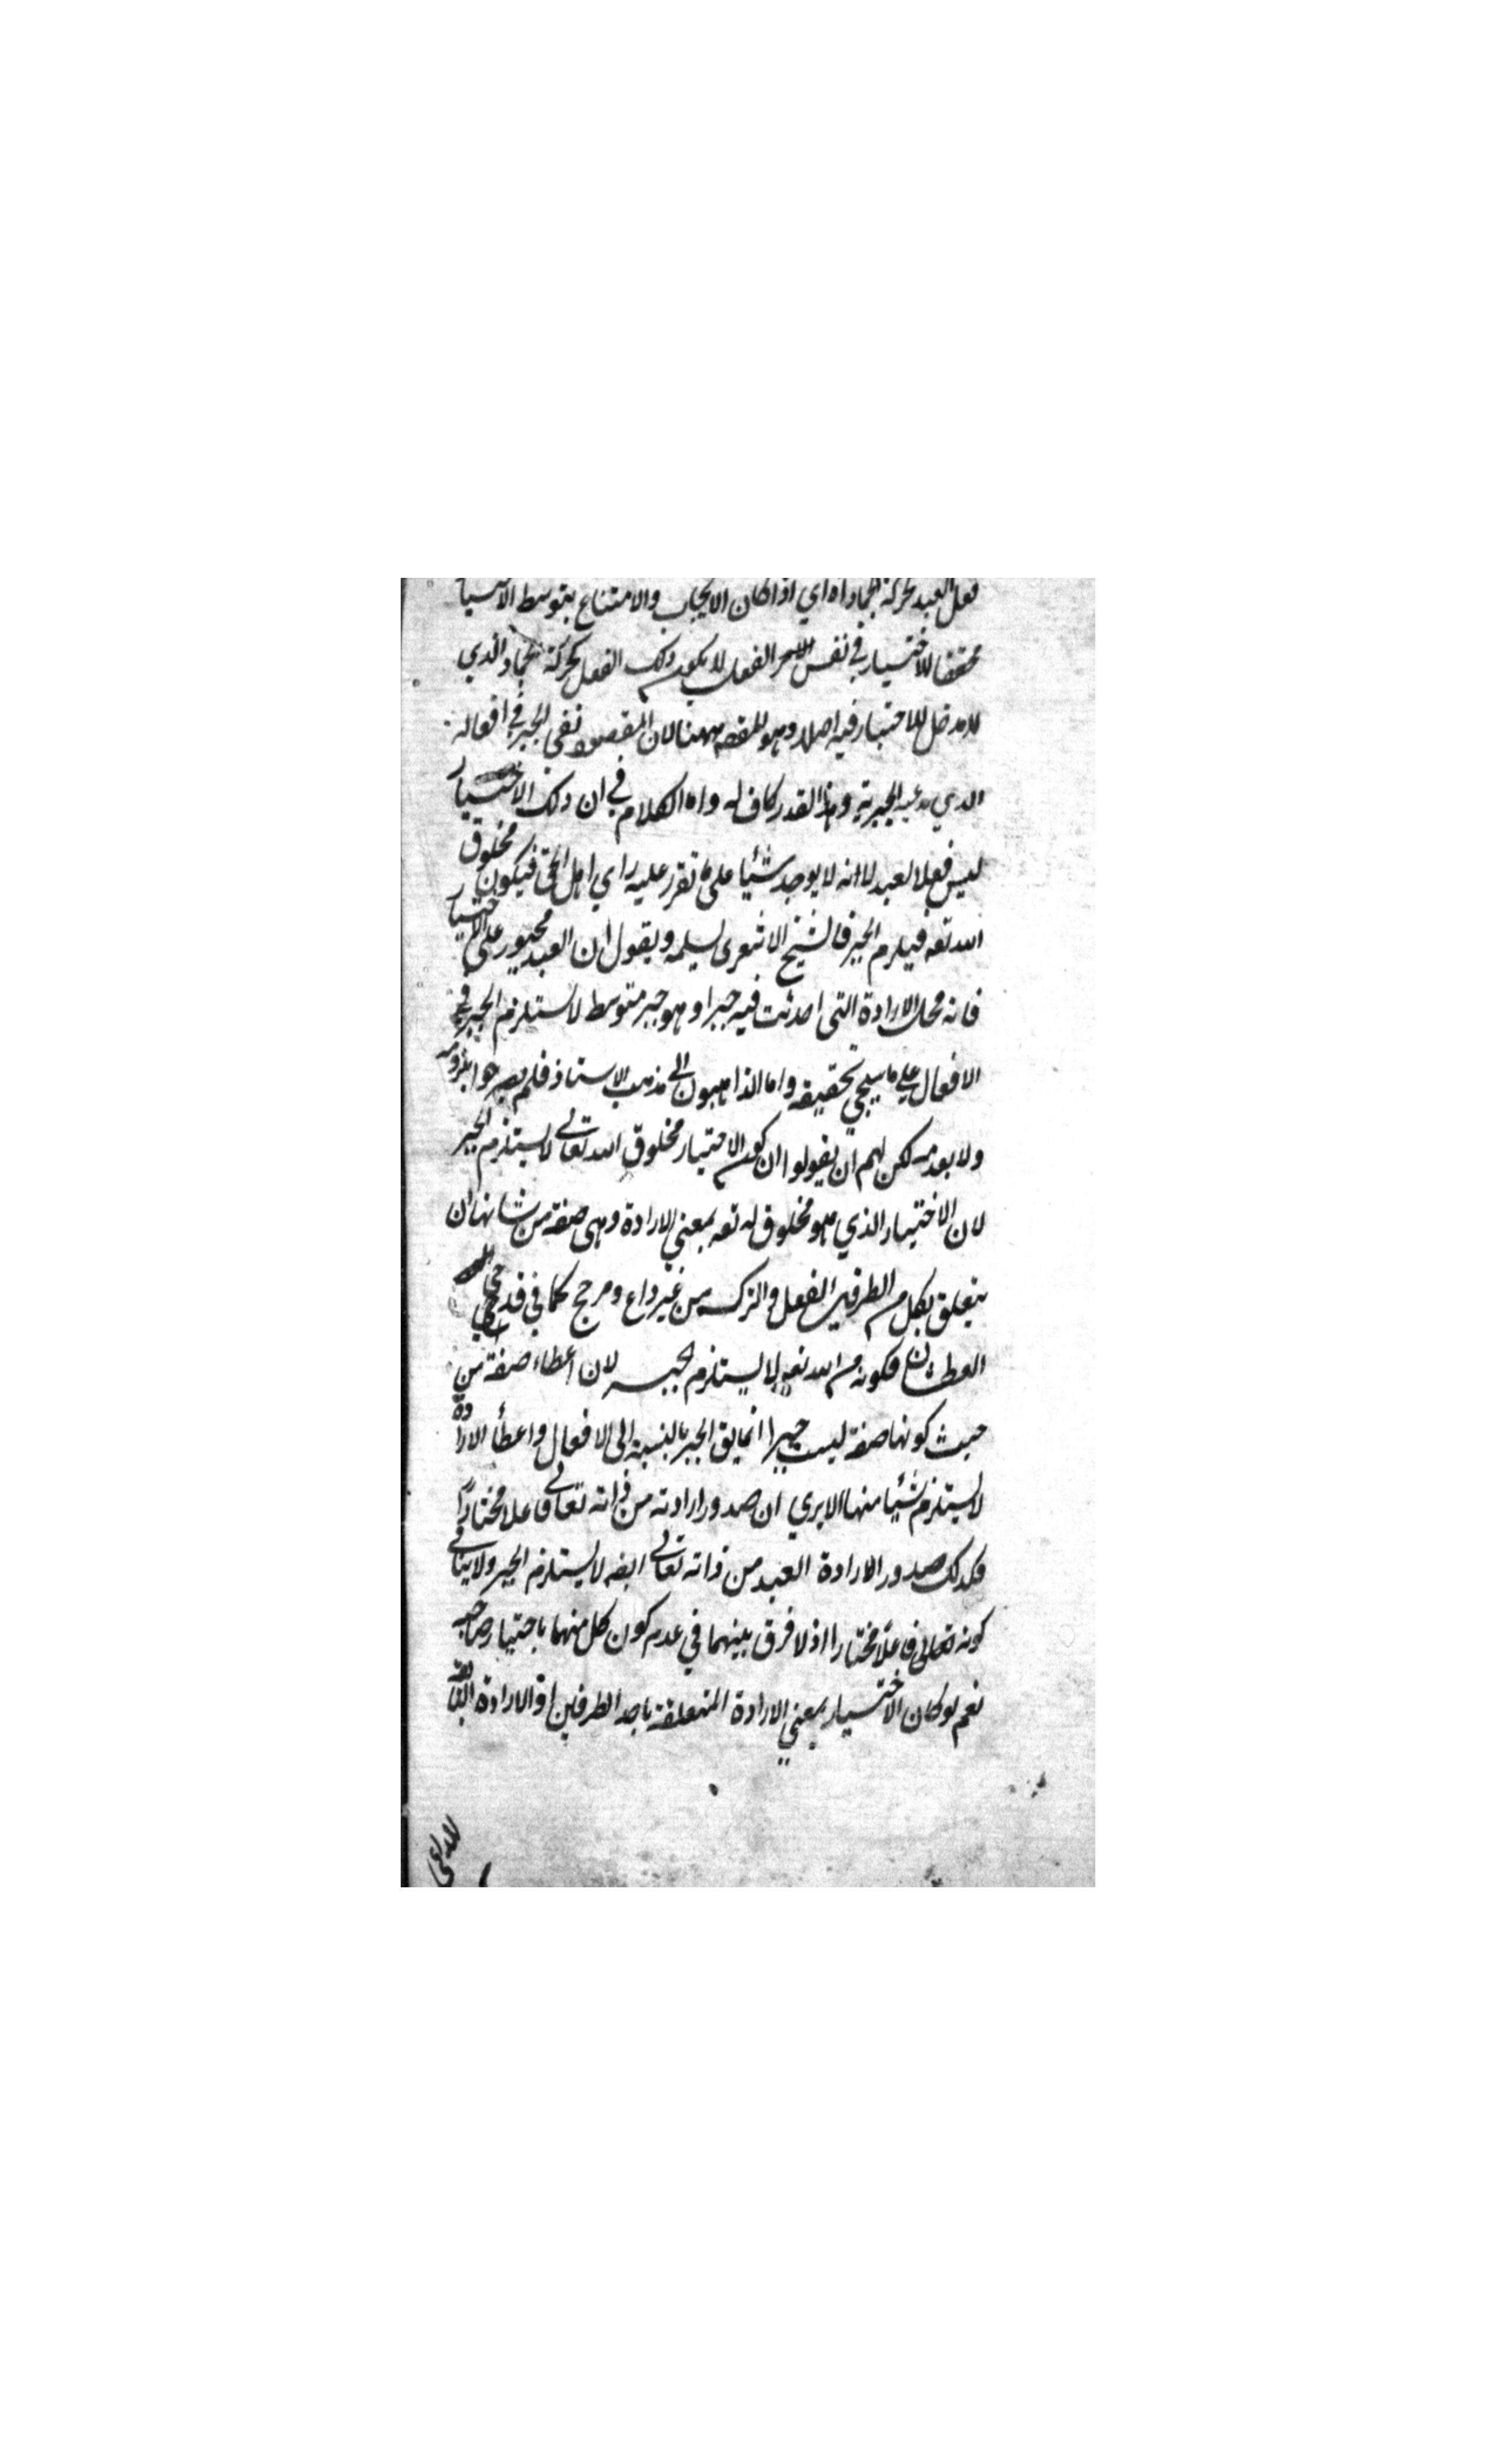 فعل العبد كحركة الجماد اه اي اذا كان الايجاب والامتناع بتوسط الاختيار
محققا للاختيار في نفس الفعل لا يكون ذلك الفعل كحركة الجماد الذي
لا مدخل للاختيار فيه اصلا وهو المقصود ههنا لان المقصود نفي الجبر في افعاله
الذي يدعيه الجبرية وهذا القدر كاف له واما الكلام في ان ذلك الاختيار
ليس فعلا لعبد لانه لا يوجد شيئا على ما تقرر عليه راي اهل الحق فيكون مخلوق
الله تعه فيلزم الجبر فالشيخ الاشعري يسلمه ويقول ان العبد مجبور على الاختيار
فانه محل الارادة التي احدثت فيه جبرا وهو جبر متوسط لا يستلزم الجبر في
الافعال علي ما سيجي تحقيقه واما الذاهبون الى مذهب الاستاذ فلم يصرحوا بلزومه
ولا بعدمه لكن لهم ان يقولوا ان كون الاختيار مخلوق الله تعالى لا يستلزم الجبر
لان الاختيار الذي هو مخلوق له تعه بمعني الارادة وهي صفة من شانها ان
يتعلق بكل من الطرفين الفعل والترك من غير داع ومرجح كما في قدحي
العطشان فكونه من الله تعه لا يستلزم الجبر لان اعطاء صفة من
حيث كونها صفة ليست جبرا انما يق الجبر بالنسبة الى الافعال واعطأ الارادة
لا يستلزم شيئا منها الا يري ان صدور ارادته من ذاته تعالى فاعلا مختارا
فكذلك صدور الارادة العبد من ذاته تعالى ايضه لا يستلزم الجبر ولا ينافي
كونه تعالى فاعلا مختارا اذ لا فرق بينهما في عدم كون كل منهما باختيار صاحبه
نعم لو كان الاختيار بمعني الارادة المتعلقة باحد الطرفين او الارادة التابعة